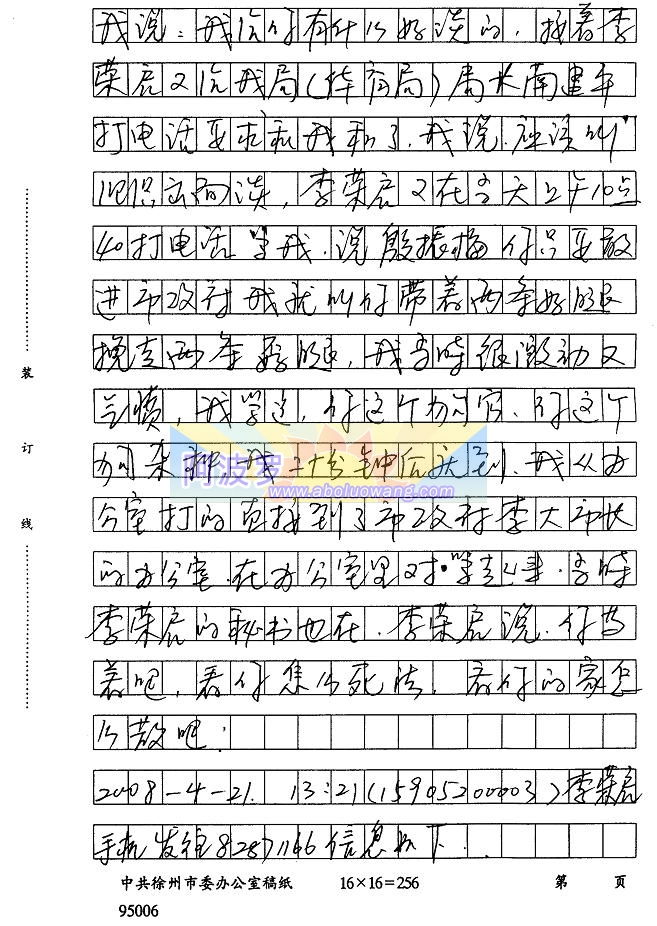 我说：我给你有什么好谈的，接着李
荣启又给我局（体育局）局长南建年
打电话要求和我和了，我说，应该叫
李荣启又在当天上午10点
40打电话 我，说殷振梅你只要敢
进市政府我就叫你带着两条好腿
两条 腿，我当时很激动又
气愤，我 道，你这个狗官、你这个
狗杂种 我二十分钟后就到，我从办
公室打的直接到了市政府李大市长
的办公室，在办公室里又对 当时
李荣启的秘书也在，李荣启说，你等
着吧，看你怎么死法，看你的家怎
么散吧；
2008-4-21. 13:21(15905200003)李荣启
手机发往82871166信息如下．
装
订
线
阿波罗
www.aboluowang.com
中共徐州市委办公室稿纸 16×16=256 第 页
95006